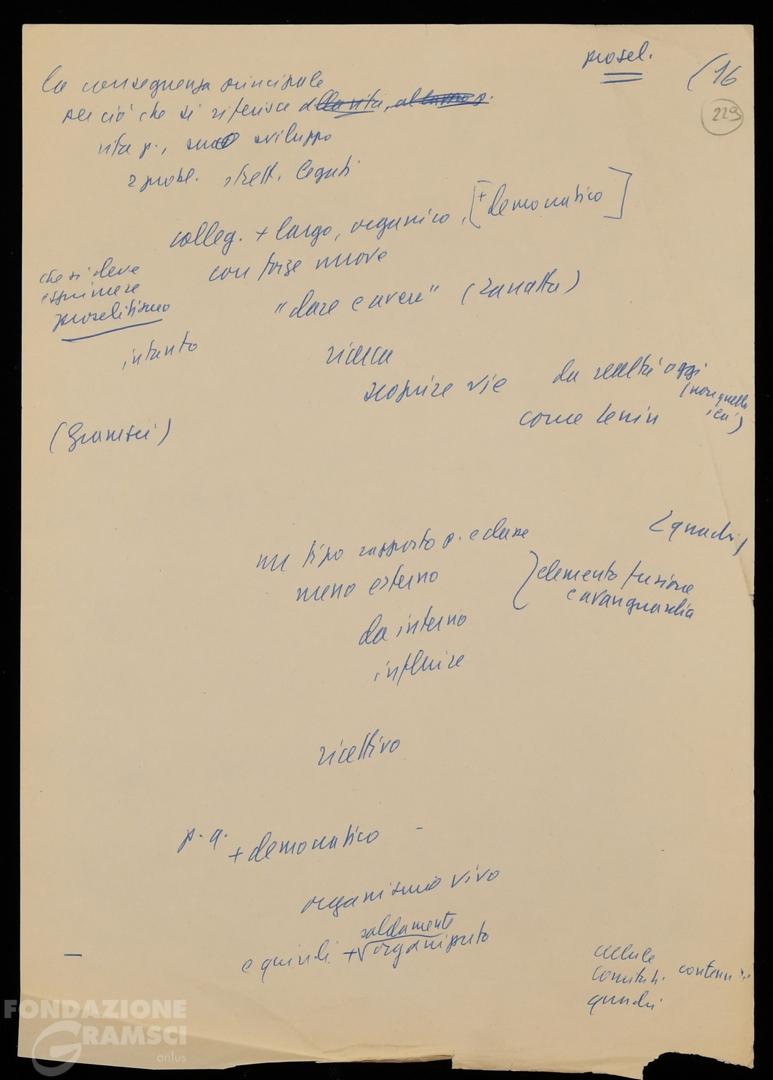 prosel.
(16
229
la conseguenza principale
per ciò che si riferisce alla vita, al
vita p., suo sviluppo
2 probl. strett. legati
colleg. + largo, organico, [+ democratico]
con forze nuove
che si deve
esprimere
proselitismo
"dare e avere" (Zanatta)
intanto
ricerca
scoprire vie da realtà oggi
(non quella
ieri)
come Lenin
(Gramsci)
(quadri)
un tipo rapporto p. e classe
meno esterno
elemento fusione
e avanguardia
da interno
influire
ricettivo
p. a. + democratico -
organismo vivo
saldamente
e quindi + organizzato
cellule
comitati
quadri
FONDAZIONE
GRAMSCI
onlus